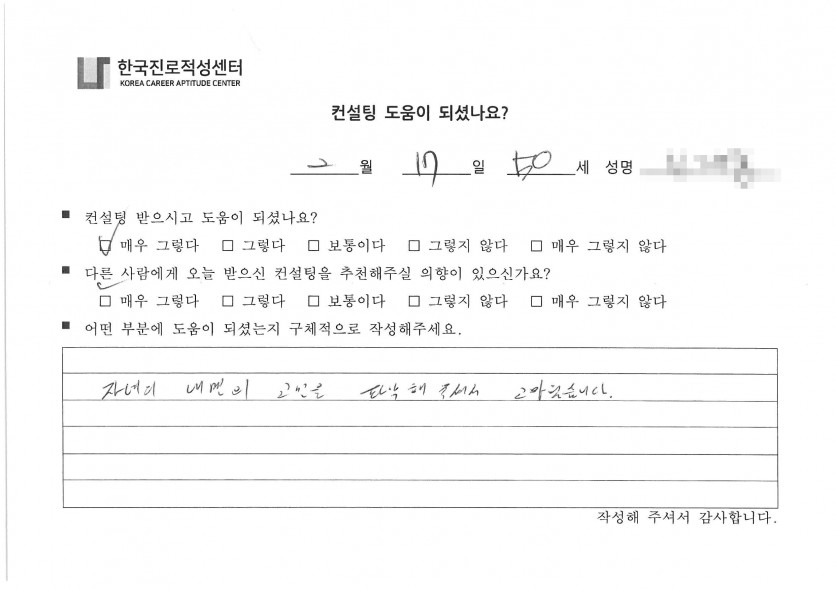 한국진로적성센터
KOREA CAREER APTITUDE CENTER
컨설팅 도움이 되셨나요?
2 월 17 일 50 세 성명
■ 컨설팅 받으시고 도움이 되셨나요?
☑ 매우 그렇다 □ 그렇다 □ 보통이다 □ 그렇지 않다 □ 매우 그렇지 않다
■ 다른 사람에게 오늘 받으신 컨설팅을 추천해주실 의향이 있으신가요?
☑ 매우 그렇다 □ 그렇다 □ 보통이다 □ 그렇지 않다 □ 매우 그렇지 않다
■ 어떤 부분에 도움이 되셨는지 구체적으로 작성해주세요.
자녀의 내면의 고민을 파악해 주셔서 고마웠습니다.
작성해 주셔서 감사합니다.